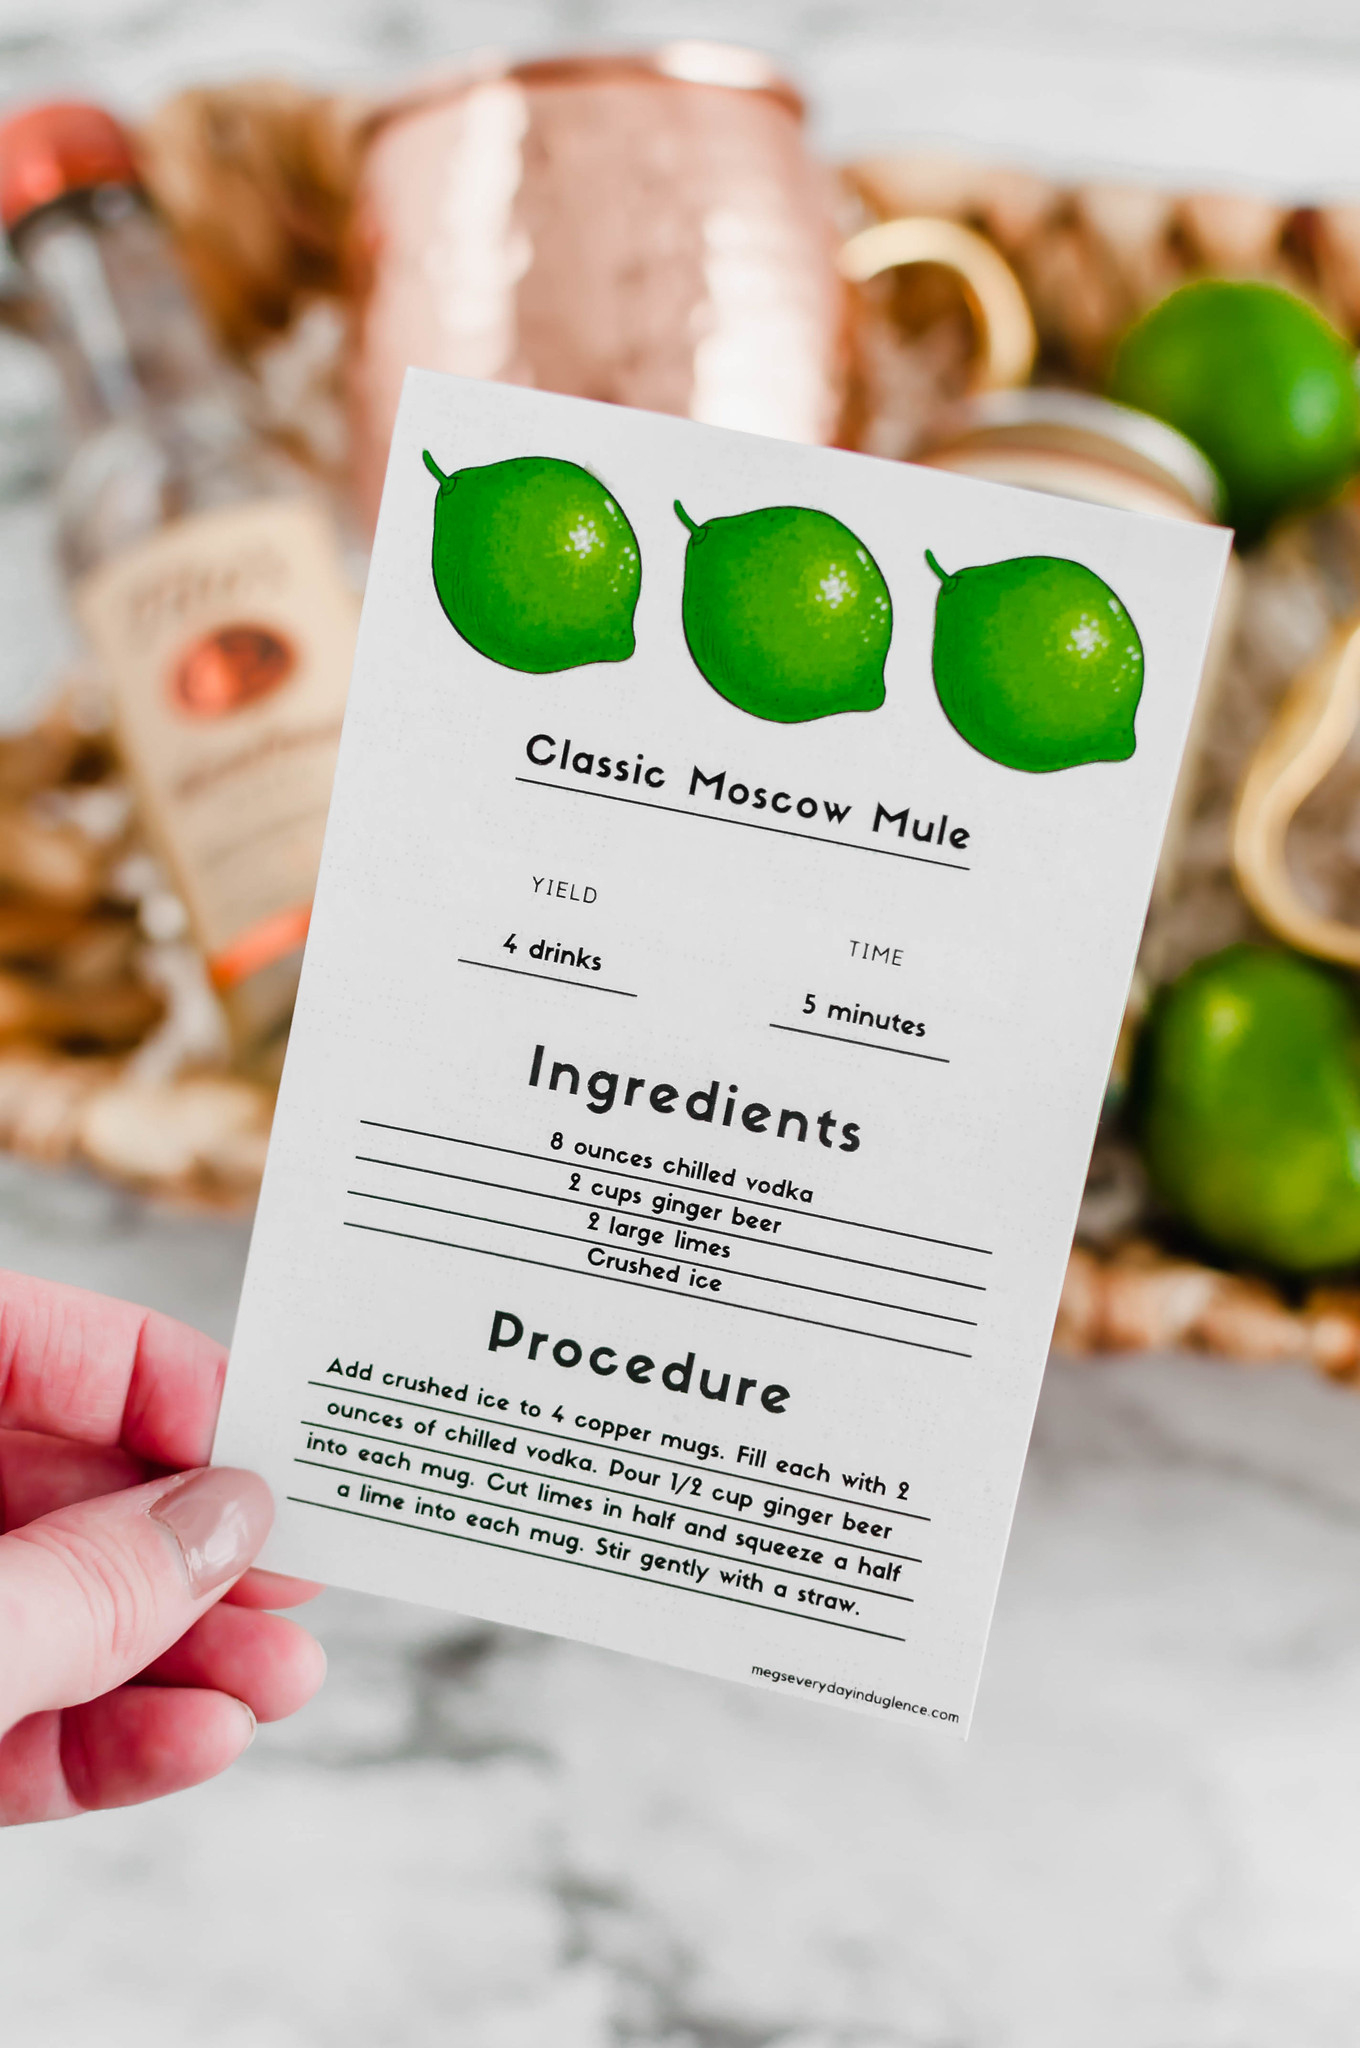 Classic Moscow Mule
YIELD
4 drinks
TIME
5 minutes
Ingredients
8 ounces chilled vodka
2 cups ginger beer
2 large limes
Crushed ice
Procedure
Add crushed ice to 4 copper mugs. Fill each with 2
ounces of chilled vodka. Pour 1/2 cup ginger beer
into each mug. Cut limes in half and squeeze a half
a lime into each mug. Stir gently with a straw.
megseverydayinduglence.com